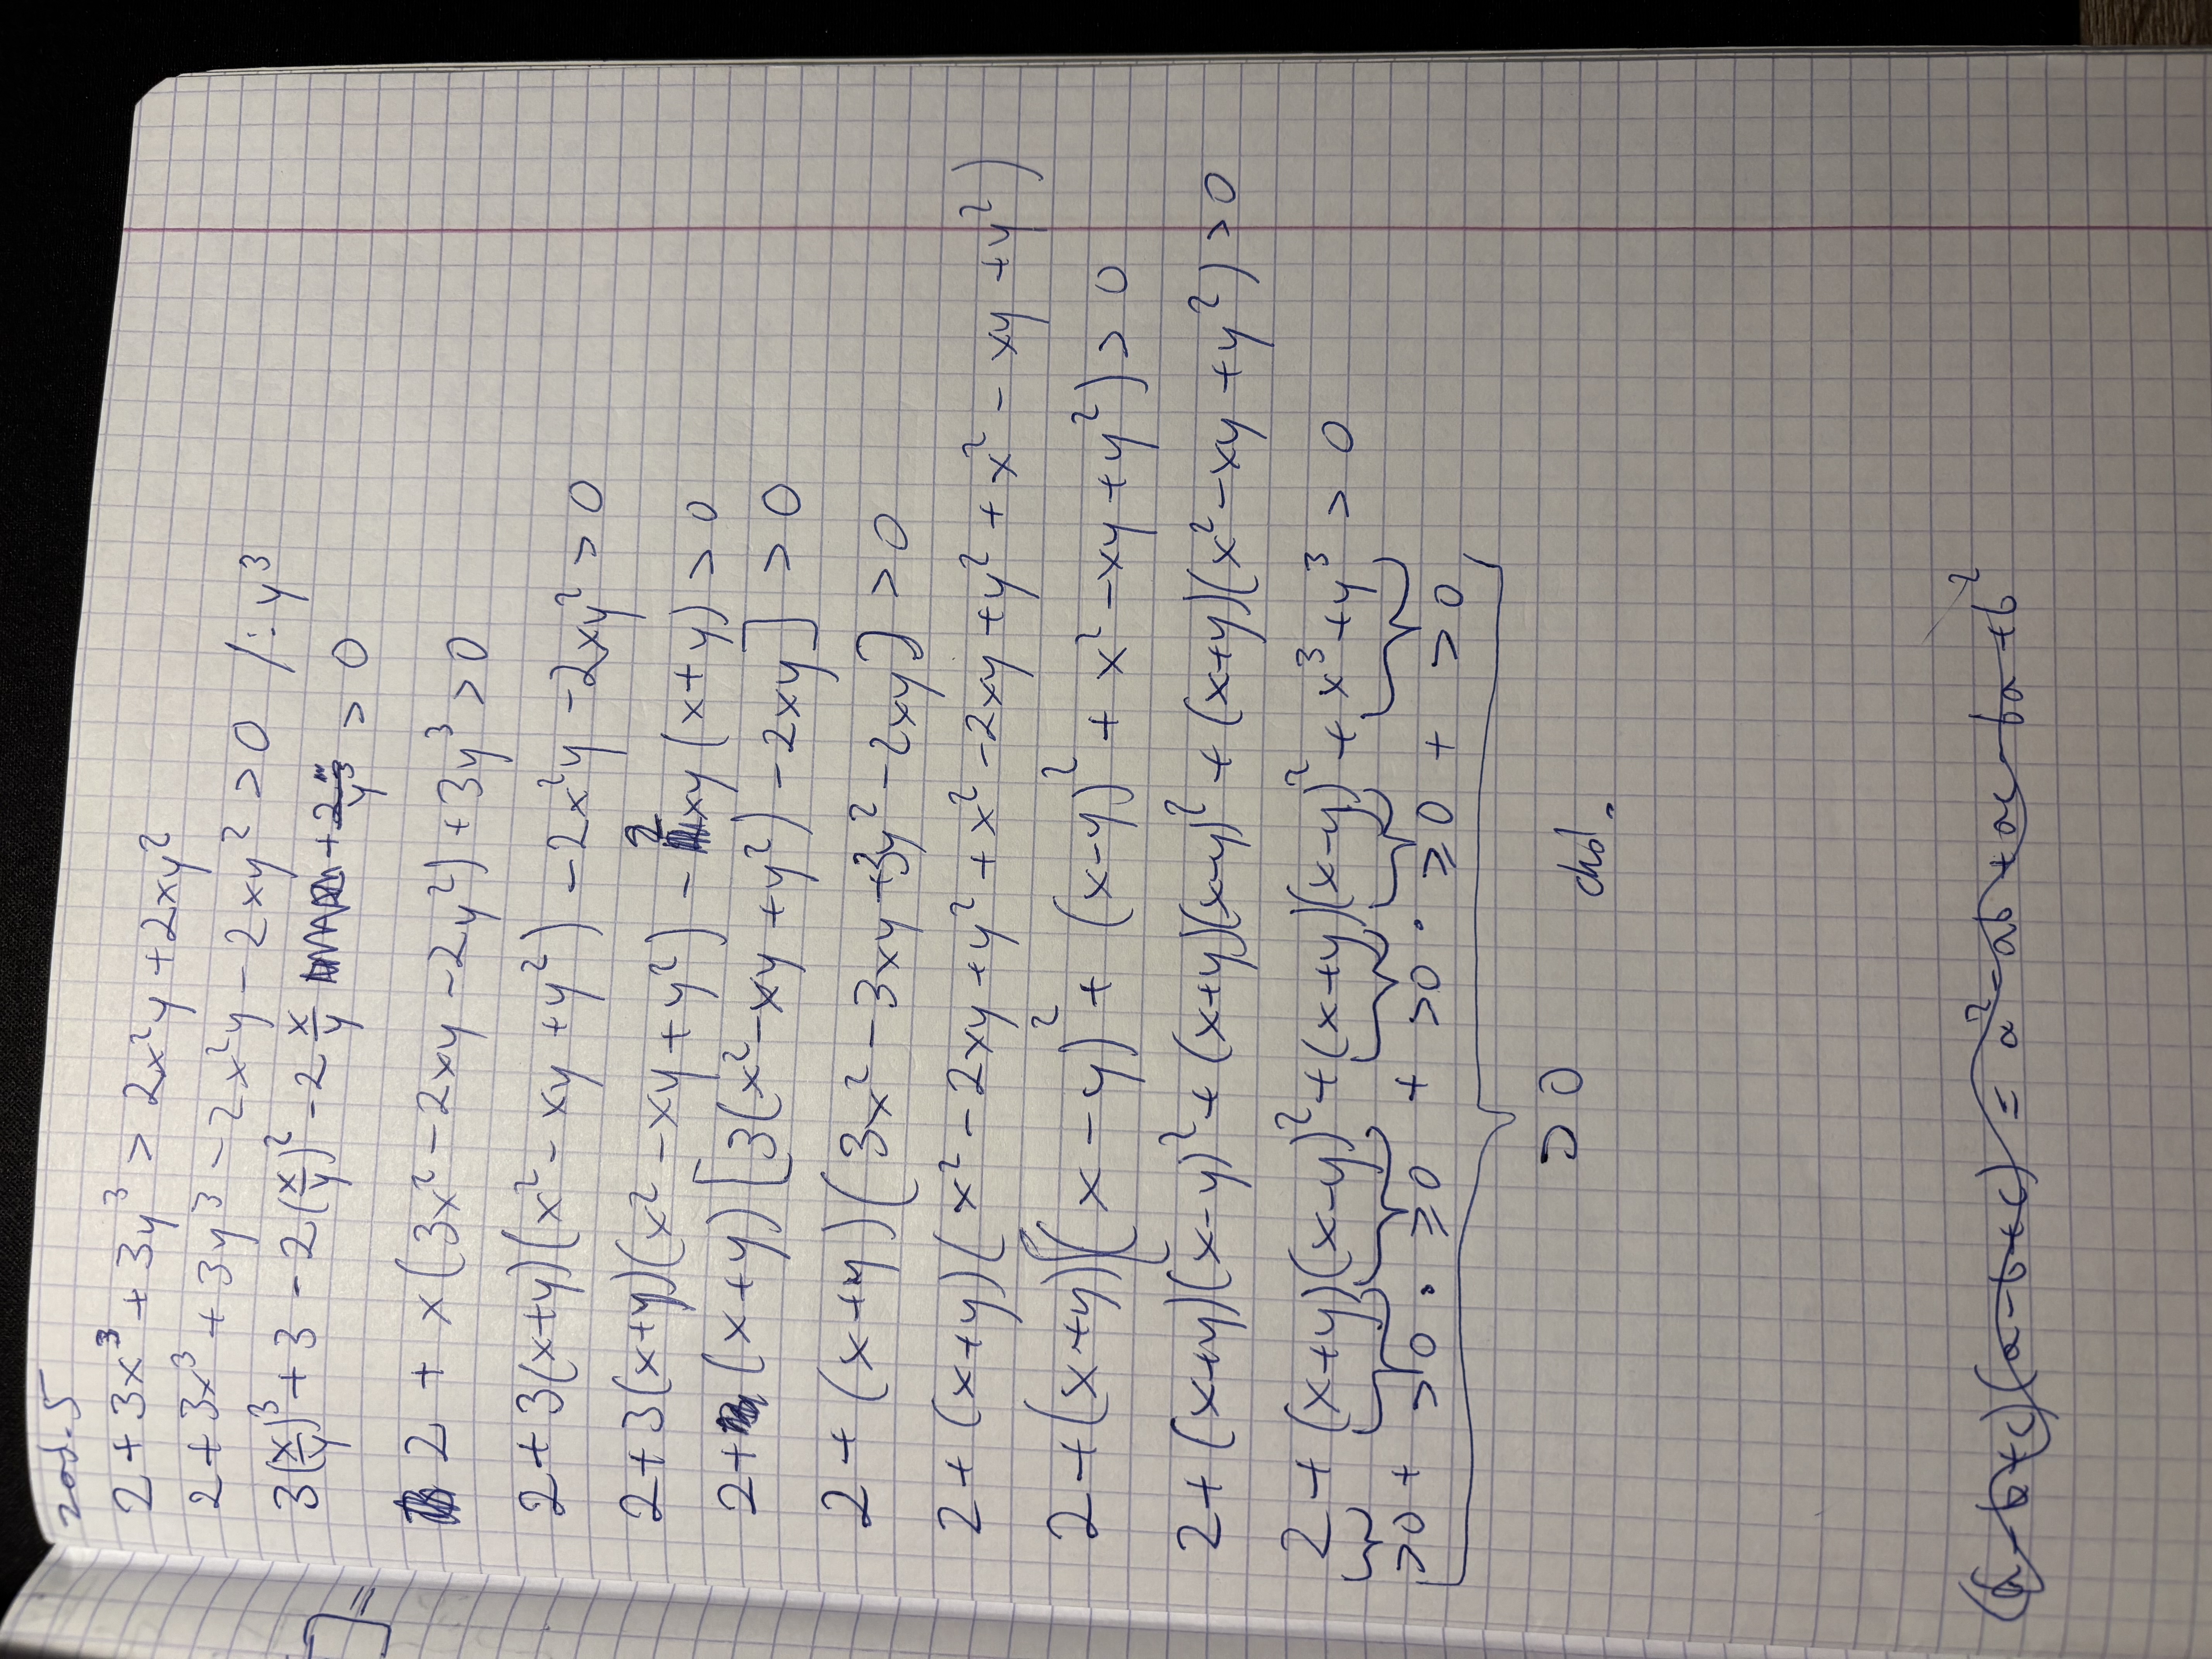 zad. 5
2+3x³+3y³ > 2x²y+2xy²
2+3x³+3y³-2x²y-2xy² > 0 /: y³
3(x/y)³+3-2(x/y)²-2x/y > 0
2+x(3x²-2xy-2y²)+3y³ > 0
2+3(x+y)(x²-xy+y²)-2x²y-2xy² > 0
2+3(x+y)(x²-xy+y²)-2xy(x+y) > 0
2+(x+y)[3(x²-xy+y²)-2xy] > 0
2+(x+y)(3x²-3xy+3y²-2xy) > 0
2+(x+y)(x²-2xy+y²+x²-2xy+y²+x²-xy+y²)
2+(x+y)((x-y)²+(x-y)²+x²-xy+y²) > 0
2+(x+y)(x-y)²+(x+y)(x-y)²+(x+y)(x²-xy+y²) > 0
2+(x+y)(x-y)²+(x+y)(x-y)²+x³+y³ > 0
>0 + >0 · ≥0 + >0 · ≥0 + >0
>0 ckd.
(a-b+c)(a-b+c) = a²-ab+ac-ba+b²
] =